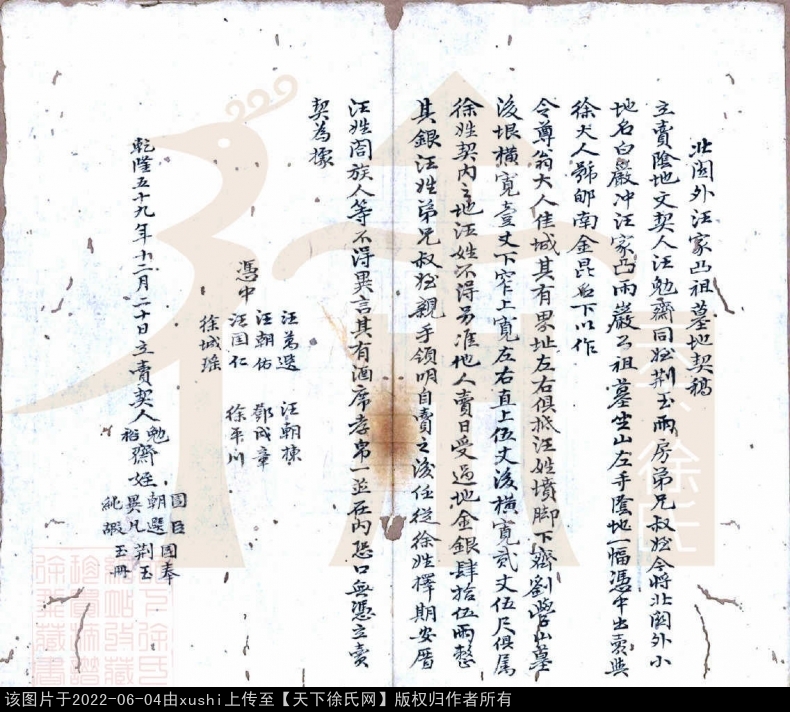 北関外汪家凸祖墓地契稿
立賣陰地文契人汪勉齋同姪荆玉兩房弟兄叔姪今將北関外小
地名白巖冲汪家凸雨巖公祖墓坐山左手陰地一幅憑中出賣與
徐大人號邰南金昆名下以作
令尊翁大人佳城其有界址左右俱抵汪姓墳脚下齊劉學山墓
後垠橫寬壹丈下窄上寬左右直上伍丈後橫寬貳丈伍尺俱属
徐姓契内之地汪姓不得另准他人賣日受過地金銀肆拾伍兩整
其銀汪姓弟兄叔姪親手領明自賣之後任從徐姓擇期安厝
汪姓閤族人等不得異言其有酒席孝帛一並在内恐口無憑立賣
契為據
憑中
汪萬選 汪朝棟
汪朝佑 鄭成章
汪国仁
徐城瑶 徐平川
乾隆五十九年十二月二十日立賣契人勉齋姪
朝選 国臣 国奉
異凡 荆玉
玉冊
泰 徐氏
该图片于2022-06-04由xushi上传至【天下徐氏网】版权归作者所有